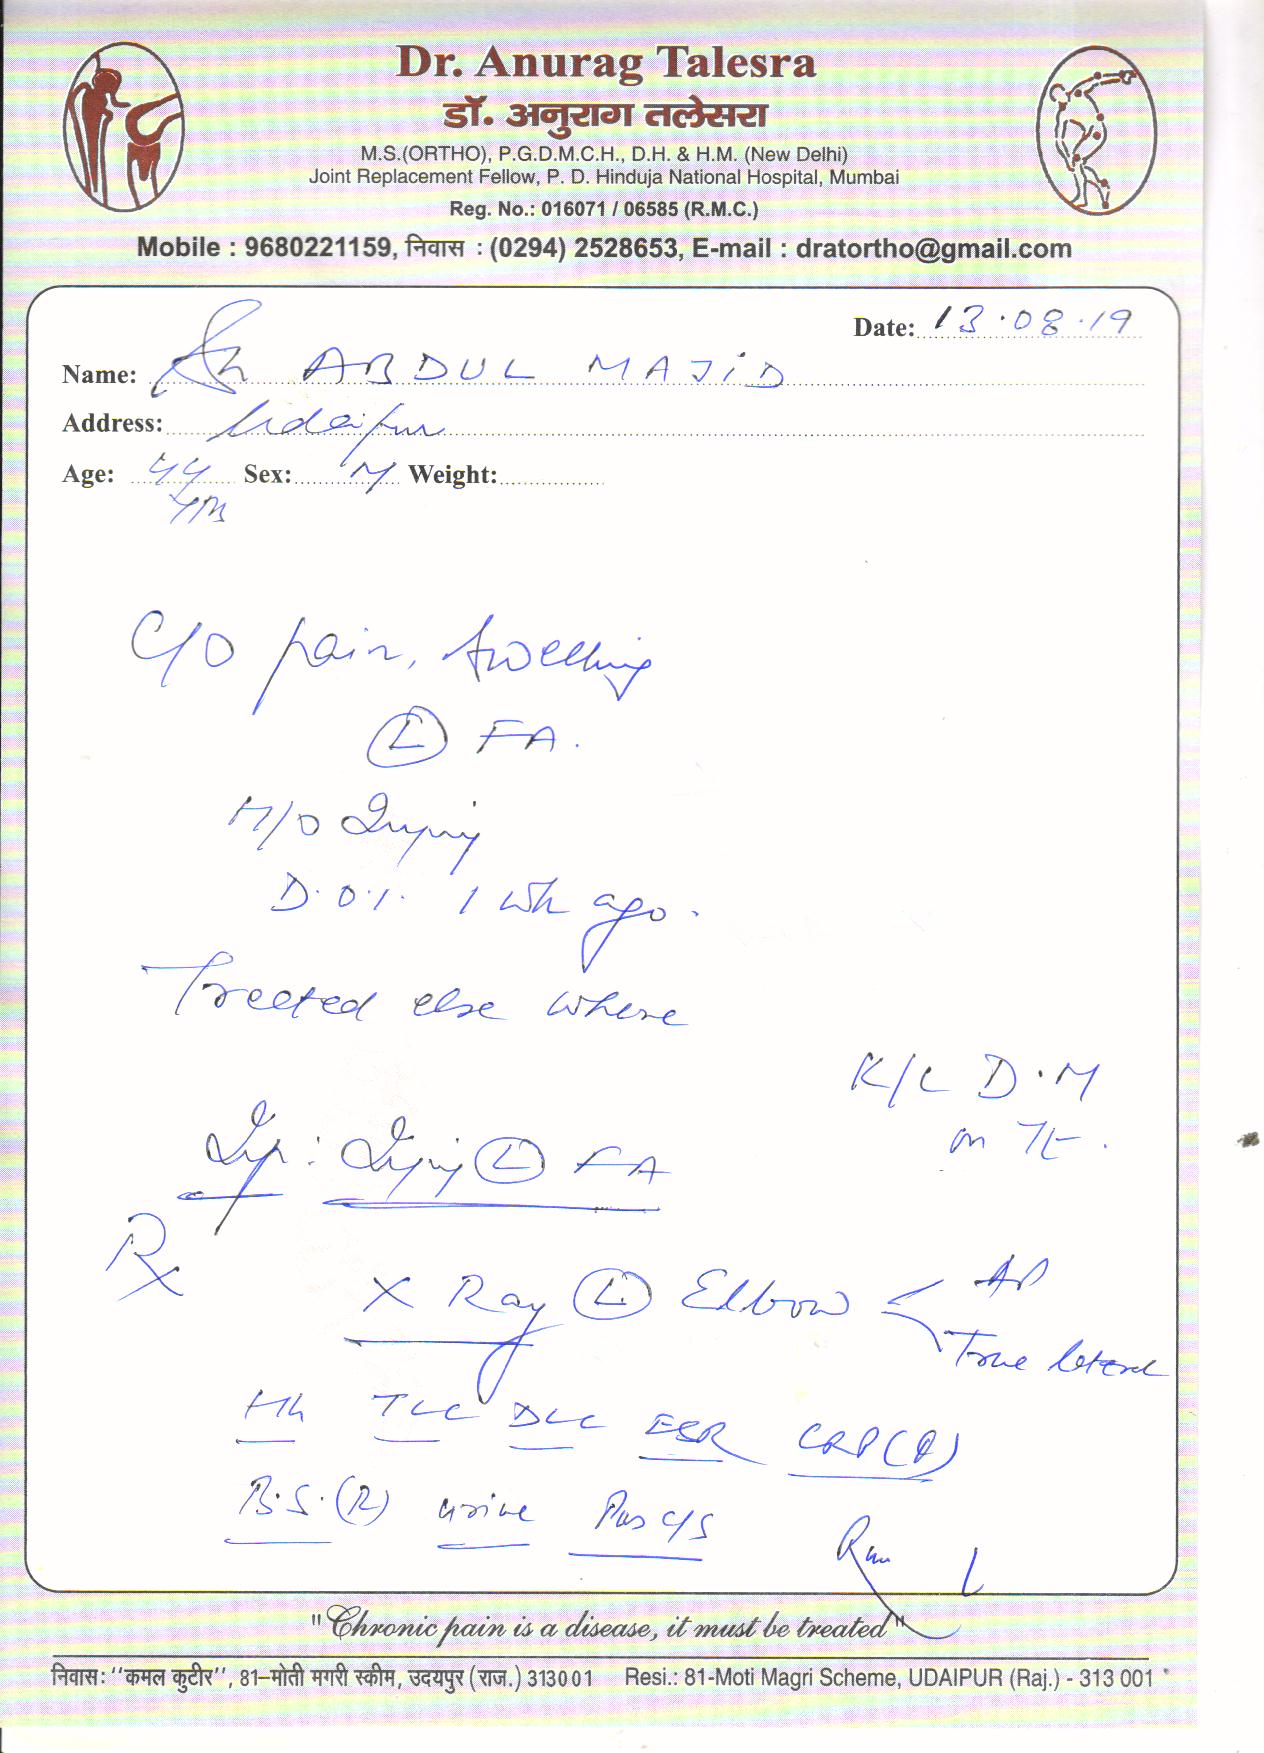 Dr. Anurag Talesra
डॉ. अनुराग तलेसरा
M.S.(ORTHO), P.G.D.M.C.H., D.H. & H.M. (New Delhi)
Joint Replacement Fellow, P. D. Hinduja National Hospital, Mumbai
Reg. No.: 016071 / 06585 (R.M.C.)
Mobile : 9680221159, निवास : (0294) 2528653, E-mail : dratortho@gmail.com
Date: 13.08.19
Name: Sh ABDUL MAJID
Address: Udaipur
Age: 44 Sex: M Weight:
Yrs
C/O pain, Swelling
(L) FA.
H/O Injury
D.O.I. 1 wk ago.
Treated else where
K/C D.M
on Tt.
Imp: Injury (L) FA
Rx
X Ray (L) Elbow < AP
True lateral
Hb TLC DLC ESR CRP(Q)
B.S.(R) urine Pus C/S
"Chronic pain is a disease, it must be treated"
निवास: ''कमल कुटीर'', 81–मोती मगरी स्कीम, उदयपुर (राज.) 313001 Resi.: 81-Moti Magri Scheme, UDAIPUR (Raj.) - 313 001